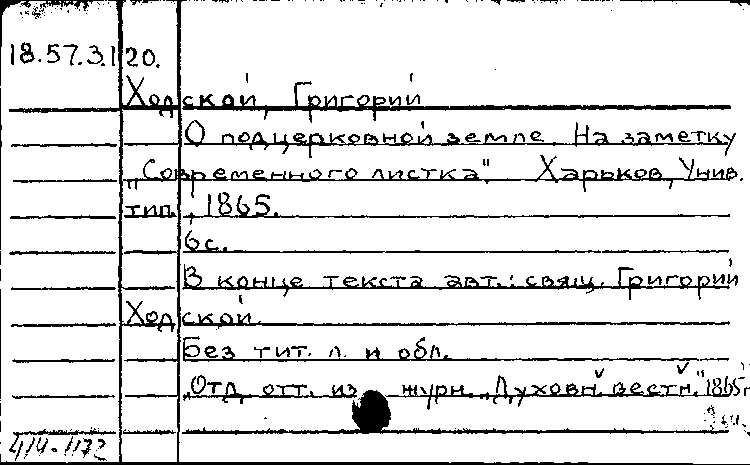 18.57.3.120.
Ходской, Григорий
О подцерковной земле. На заметку
„Современного листка". Харьков, Унив.
тип., 1865.
6с.
В конце текста авт.: свящ. Григорий
Ходской.
Без тит. л. и обл.
„Отд. отт. из журн. „Духовн. вестн." 1865г
414-1172